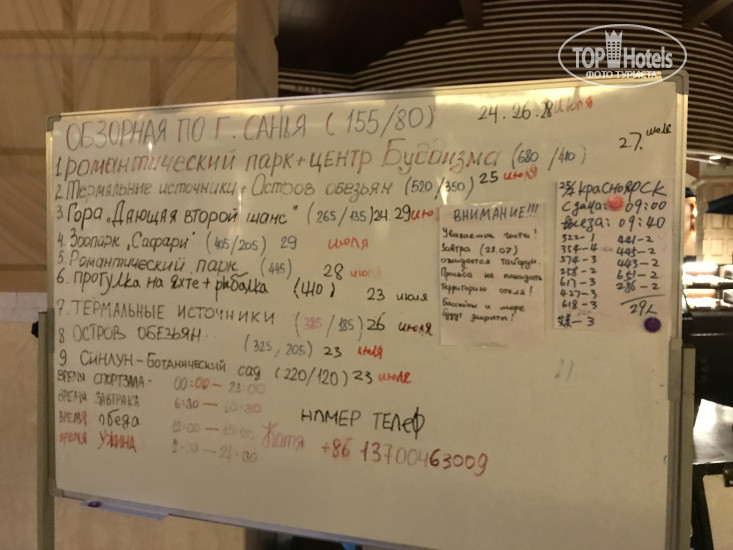 TOP Hotels
ФОТО ТУРИСТА
ОБЗОРНАЯ ПО Г. САНЬЯ (155/80) 24.26.28 июля
1 романтический парк + центр Буддизма (680/410) 27. июля
2. Термальные источники + Остров обезьян (520/350) 25 июля
3. Гора "Дающая второй шанс" (265/135) 24 29 июл
4. Зоопарк "Сафари" (405/205) 29 июля
5. Романтический парк (445) 28 июля
6. прогулка на яхте + рыбалка (410) 23 июля
7. ТЕРМАЛЬНЫЕ ИСТОЧНИКИ (385/185) 26 июля
8 ОСТРОВ ОБЕЗЬЯН (325, 205) 23 июля
9. СИНЛУН-Ботанический сад (220/120) 23 июля
ВРЕМЯ СПОРТЗАЛА - 00:00 - 23:00
ВРЕМЯ ЗАВТРАКА 6:30 -
ВРЕМЯ Обеда 12:00 -
ВРЕМЯ УЖИНА
НОМЕР ТЕЛЕФ
Катя +86 13700463009
ВНИМАНИЕ!!!
Уважаемые гости!
Завтра (23.07)
ожидается Тайфун.
Просьба не покидать
территорию отеля!
Бассейны и море
будут закрыты!
КРАСНОЯРСК
Сдача: 09:00
выезд: 09:40
322-1 441-2
354-4 445-2
374-3 443-2
358-2 651-2
617-3 286-2
427-3
618-3 29人